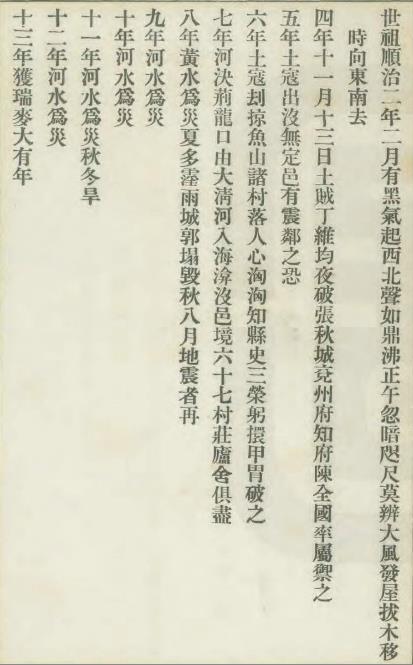 世祖順治二年二月有黑氣起西北聲如鼎沸正午忽暗咫尺莫辨大風發屋拔木移
時向東南去
四年十一月十三日土賊丁維均夜破張秋城兗州府知府陳全國率屬禦之
五年土寇出沒無定邑有震鄰之恐
六年土寇刦掠魚山諸村落人心洶洶知縣史三榮躬擐甲冑破之
七年河決荊龍口由大淸河入海渰沒邑境六十七村莊廬舍俱盡
八年黃水爲災夏多霪雨城郭塌毀秋八月地震者再
九年河水爲災
十年河水爲災
十一年河水爲災秋冬旱
十二年河水爲災
十三年獲瑞麥大有年